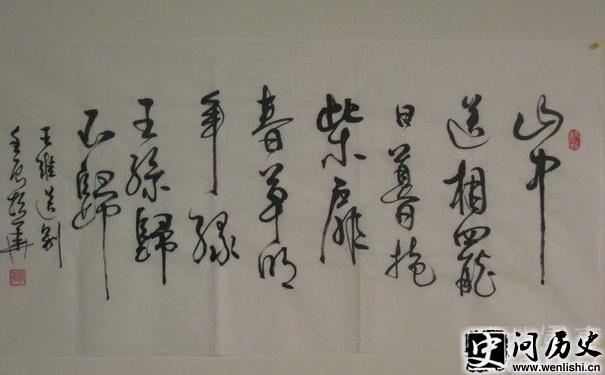 山中
送相罷
日暮掩
柴扉
春草明
年緑
王孫歸
不歸
王維送别
壬辰 華
问历史
www.wenlishi.cn